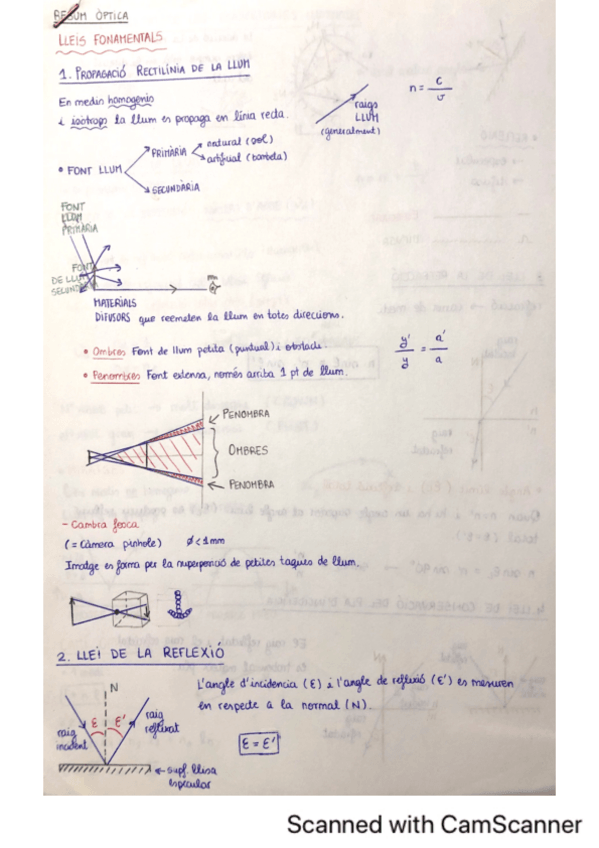 RESUM ÒPTICA
LLEIS FONAMENTALS
1. PROPAGACIÓ RECTILÍNIA DE LA LLUM
En medis homogenis
i isòtrops la llum es propaga en línia recta.
raigs
LLUM
(generalment)
n = c/v
• FONT LLUM
PRIMÀRIA
natural (sol)
artificial (bombeta)
SECUNDÀRIA
FONT
LLUM
PRIMÀRIA
FONT
DE LLUM
SECUNDÀRIA
MATERIALS
DIFUSORS que reemeten la llum en totes direccions.
• Ombres Font de llum petita (puntual) i obstacle.
• Penombres Font extensa, només arriba 1 pt de llum.
y'/y = a'/a
PENOMBRA
OMBRES
PENOMBRA
- Cambra fosca
(= Càmera pinhole) ø < 1mm
Imatge es forma per la superposició de petites taques de llum.
2. LLEI DE LA REFLEXIÓ
N
ε ε'
raig
incident
raig
reflexat
supf. llisa
especular
L'angle d'incidencia (ε) i l'angle de reflexió (ε') es mesuren
en respecte a la normal (N).
ε = ε'
Scanned with CamScanner